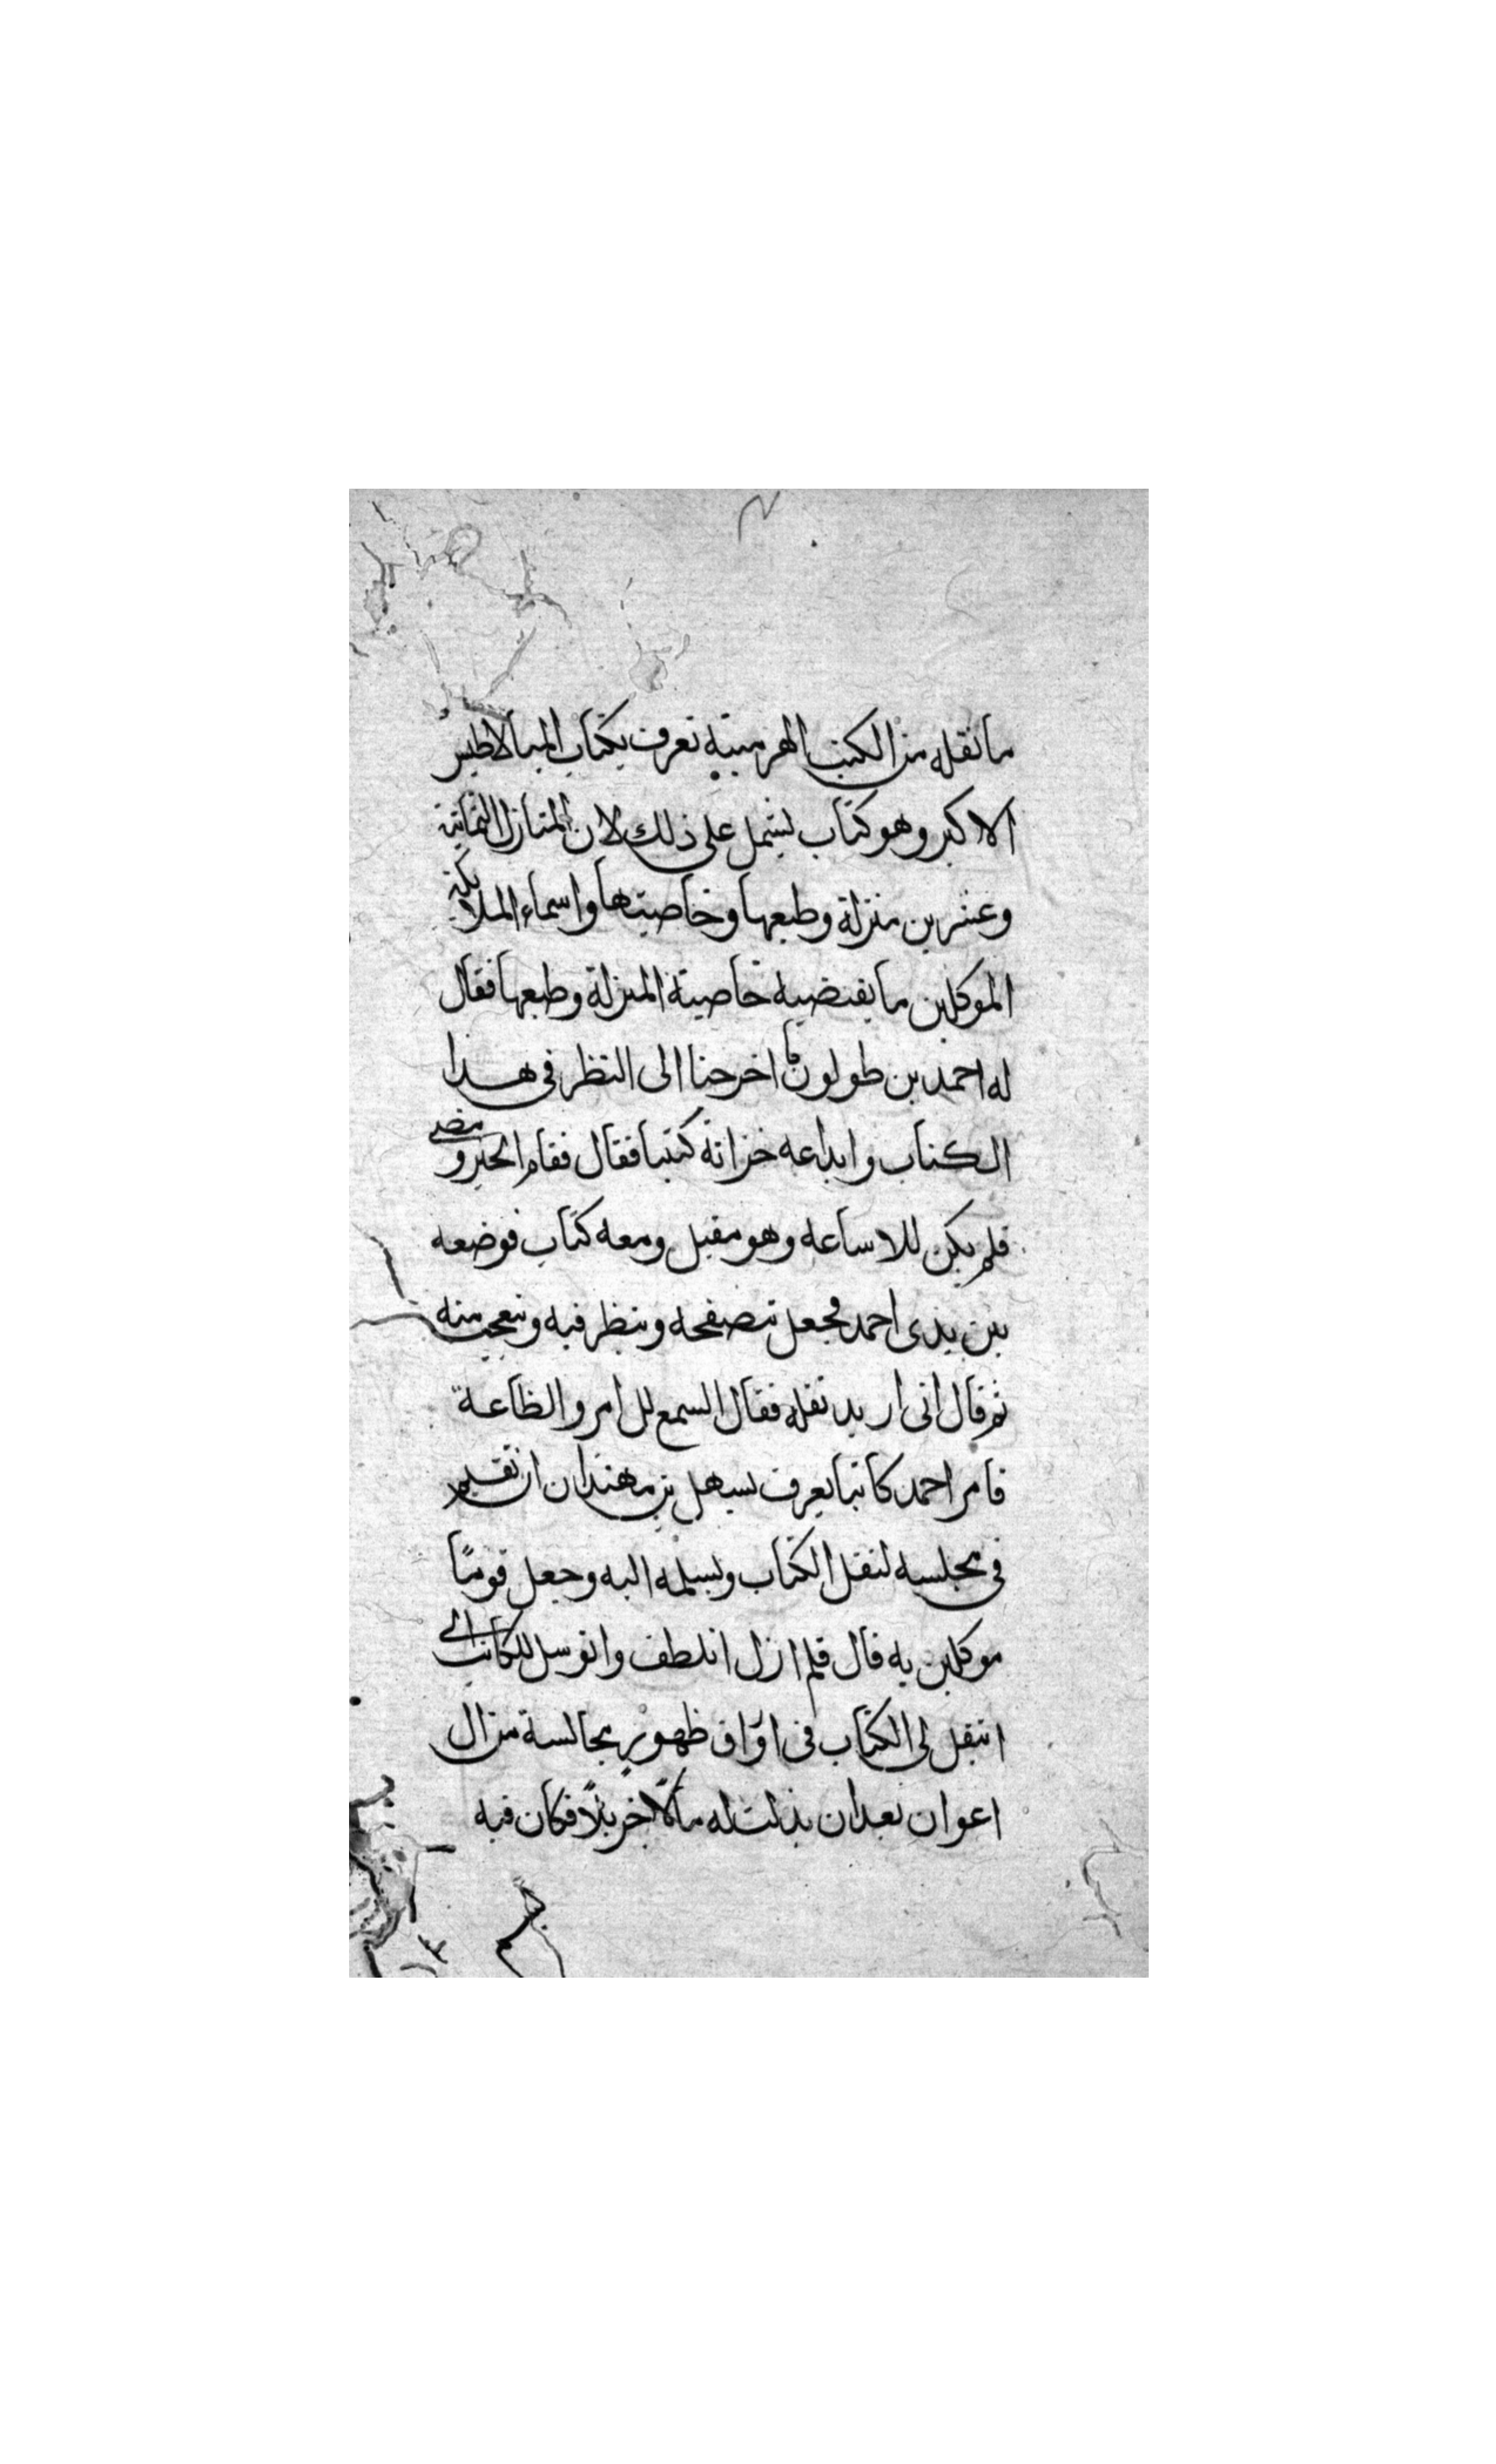 ما نقله من الكتب الهرميية تعرف بكتاب الميالاطيس
الاكبر وهو كتاب يشمل على ذلك لان المنازل الثمانية
وعشرين منزلة وطبعها وخاصيتها واسماء الملايكة
الموكلين ما يقتضيه خاصية المنزلة وطبعها فقال
له احمد بن طولون اخرجنا الى النظر فى هذا
الكتاب وايداعه خزانة كتبنا فقال فقام الحبر ومضى
فلم يكن للا ساعه وهو مقبل ومعه كتاب فوضعه
بين يدى احمد فجعل يتصفحه وينظر فيه ويتعجب منه
ثم قال انى اريد نقله فقال السمع للامر والطاعة
فامر احمد كاتبا يعرف بسهل بن مهندان ان يقيم
فى مجلسه لنقل الكتاب ويسلمه اليه وجعل قومًا
موكلين به قال فلم ازل اتلطف واتوسل للكاتب الى
انتقل لى الكتاب فى اوراق ظهور مجالسة من ال
اعوان بعد ان بذلت له مالًا جزيلًا فكان فيه